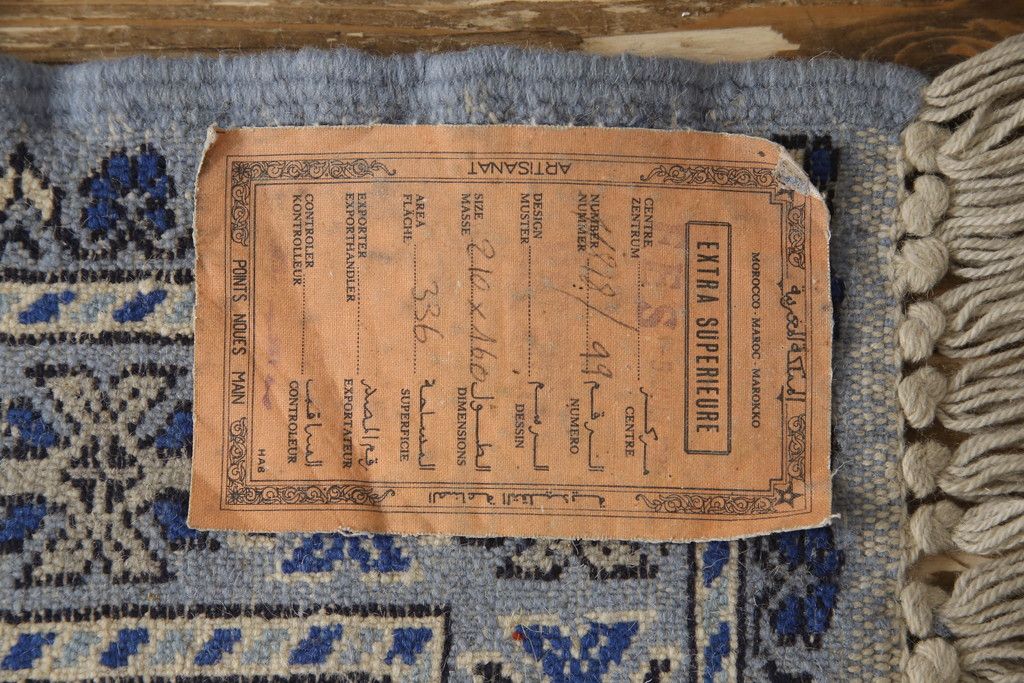 المملكة المغربية
MOROCCO - MAROC - MAROKKO
EXTRA SUPERIEURE
CENTRE مركز
ZENTRUM CENTRE
FES
NUMBER 99 الرقم
NUMMER NUMERO
DESIGN الرسم
MUSTER DESSIN
SIZE 210 x 160 الطول
MASSE DIMENSIONS
AREA 336 المساحة
FLÄCHE SUPERFICIE
EXPORTER
EXPORTHANDLER EXPORTATEUR
CONTROLER المراقب
KONTROLLEUR CONTROLEUR
HAB
POINTS NOUES MAIN
ARTISANAT
الصناعة التقليدية